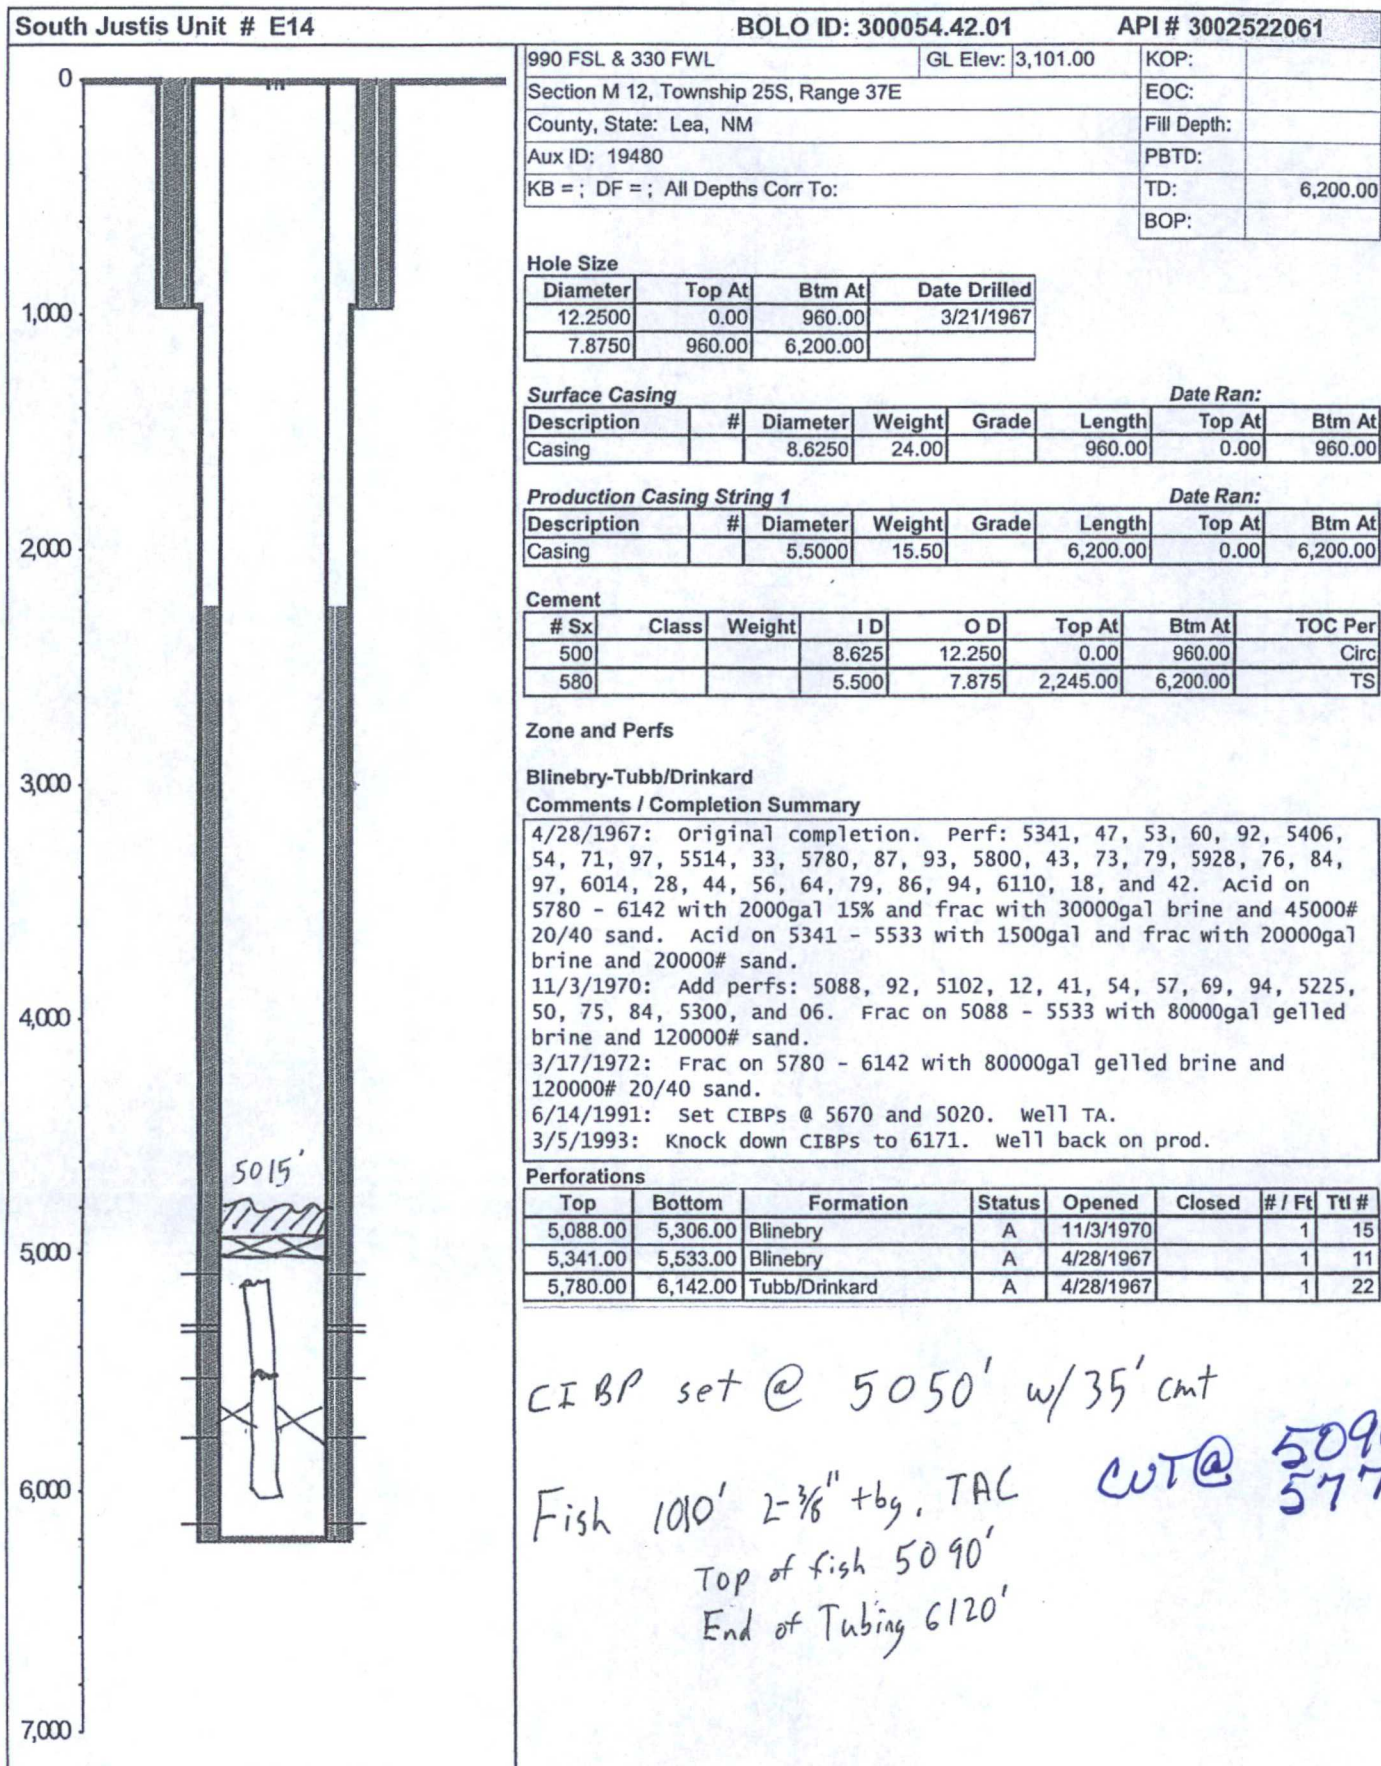 South Justis Unit # E14 BOLO ID: 300054.42.01 API # 3002522061
990 FSL & 330 FWL GL Elev: 3,101.00 KOP:
Section M 12, Township 25S, Range 37E EOC:
County, State: Lea, NM Fill Depth:
Aux ID: 19480 PBTD:
KB = ; DF = ; All Depths Corr To: TD: 6,200.00
BOP:
Hole Size
Diameter Top At Btm At Date Drilled
12.2500 0.00 960.00 3/21/1967
7.8750 960.00 6,200.00
Surface Casing Date Ran:
Description # Diameter Weight Grade Length Top At Btm At
Casing 8.6250 24.00 960.00 0.00 960.00
Production Casing String 1 Date Ran:
Description # Diameter Weight Grade Length Top At Btm At
Casing 5.5000 15.50 6,200.00 0.00 6,200.00
Cement
# Sx Class Weight I D O D Top At Btm At TOC Per
500 8.625 12.250 0.00 960.00 Circ
580 5.500 7.875 2,245.00 6,200.00 TS
Zone and Perfs
Blinebry-Tubb/Drinkard
Comments / Completion Summary
4/28/1967: Original completion. Perf: 5341, 47, 53, 60, 92, 5406,
54, 71, 97, 5514, 33, 5780, 87, 93, 5800, 43, 73, 79, 5928, 76, 84,
97, 6014, 28, 44, 56, 64, 79, 86, 94, 6110, 18, and 42. Acid on
5780 - 6142 with 2000gal 15% and frac with 30000gal brine and 45000#
20/40 sand. Acid on 5341 - 5533 with 1500gal and frac with 20000gal
brine and 20000# sand.
11/3/1970: Add perfs: 5088, 92, 5102, 12, 41, 54, 57, 69, 94, 5225,
50, 75, 84, 5300, and 06. Frac on 5088 - 5533 with 80000gal gelled
brine and 120000# sand.
3/17/1972: Frac on 5780 - 6142 with 80000gal gelled brine and
120000# 20/40 sand.
6/14/1991: Set CIBPs @ 5670 and 5020. Well TA.
3/5/1993: Knock down CIBPs to 6171. Well back on prod.
Perforations
Top Bottom Formation Status Opened Closed # / Ft Ttl #
5,088.00 5,306.00 Blinebry A 11/3/1970 1 15
5,341.00 5,533.00 Blinebry A 4/28/1967 1 11
5,780.00 6,142.00 Tubb/Drinkard A 4/28/1967 1 22
CIBP set @ 5050' w/35' cmt
Fish 1010' 2-3/8" tbg, TAC
Top of fish 5090'
End of Tubing 6120'
CUT @
0
1,000
2,000
3,000
4,000
5015'
5,000
6,000
7,000